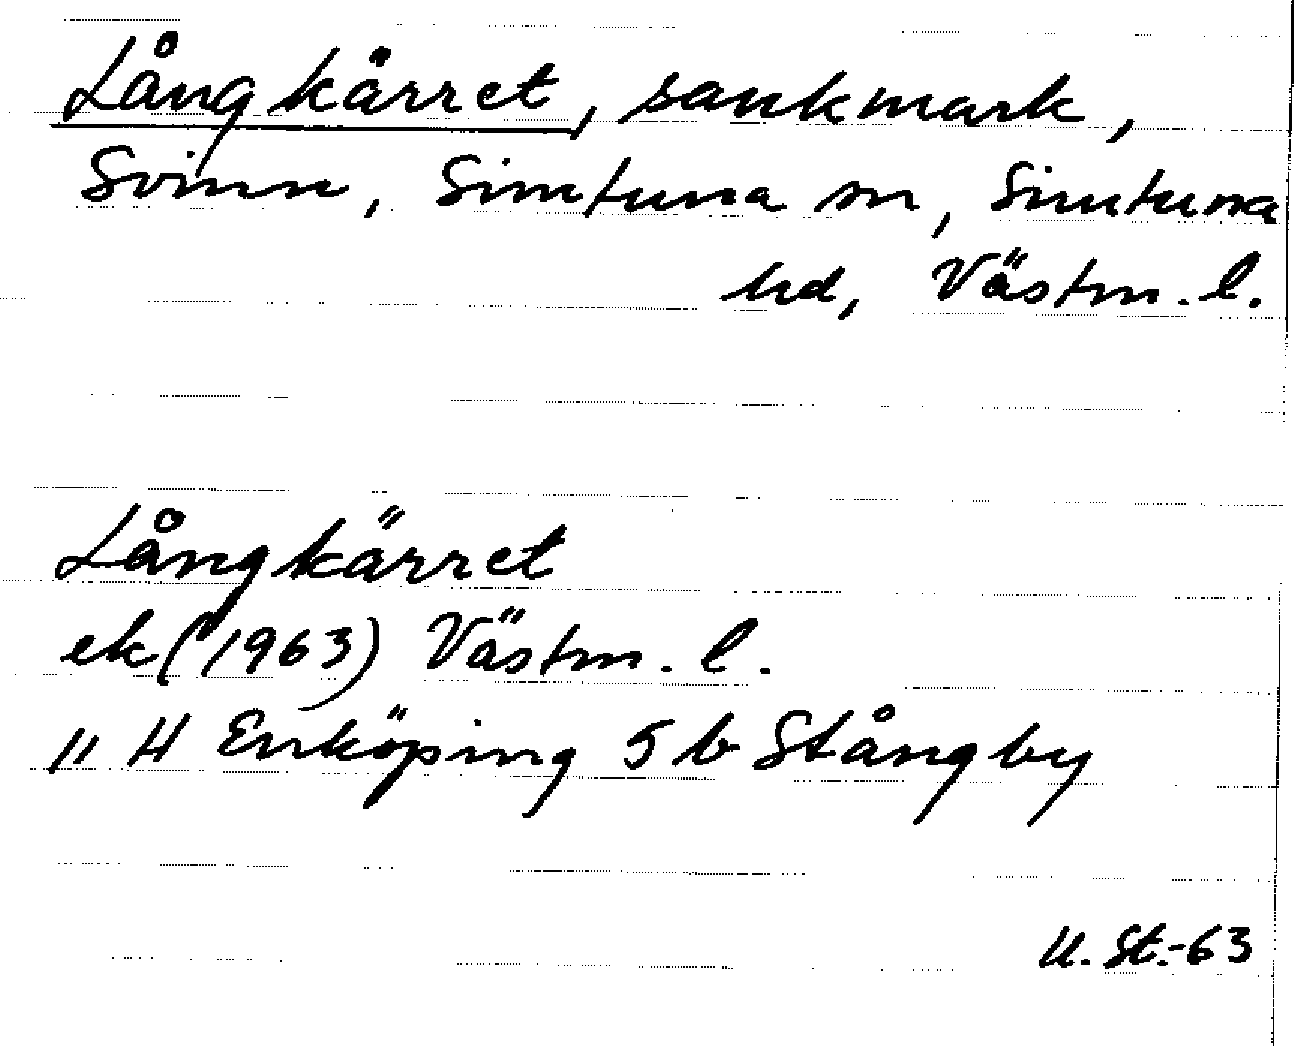 Långkärret, sankmark,
Svinn, Simtuna sn, Simtuna
hd, Västm. l.
Långkärret
ek (1963) Västm. l.
11 H Enköping 5 b Stångby
U. St.-63